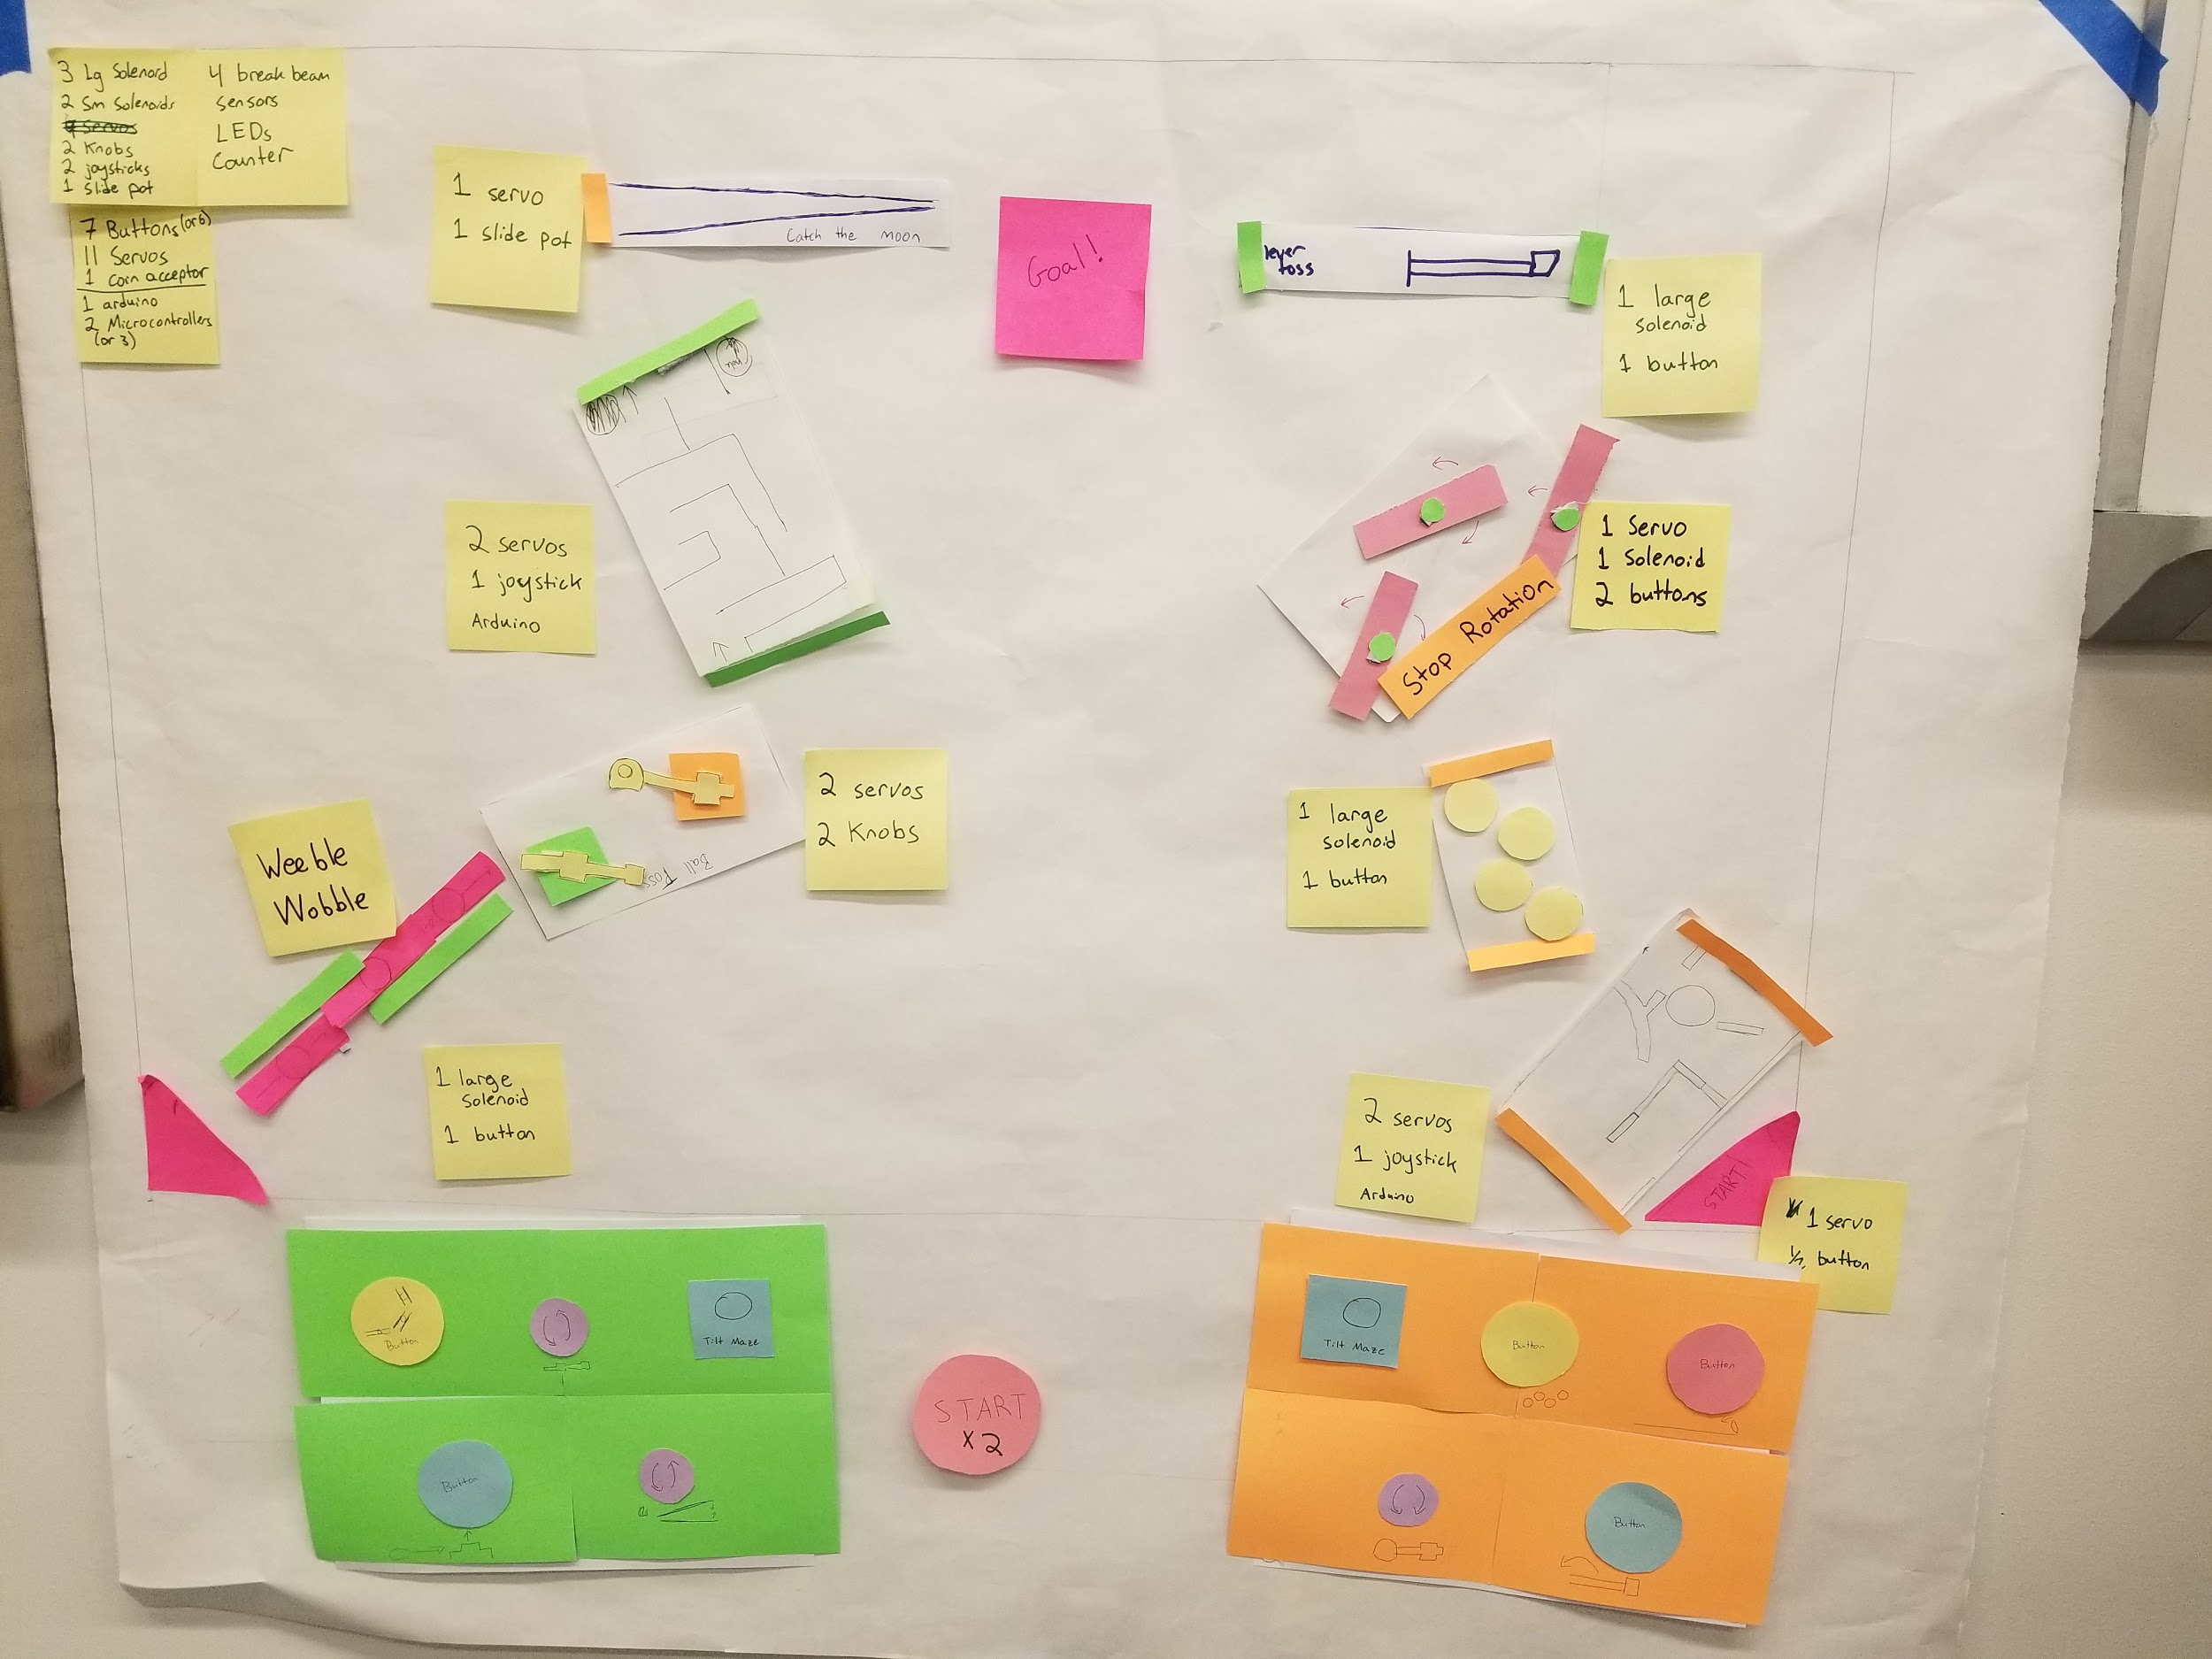 3 Lg Solenoid
2 Sm Solenoids
2 Knobs
2 joysticks
1 slide pot
4 break beam
sensors
LEDs
Counter
7 Buttons (or 6)
11 Servos
1 coin acceptor
1 arduino
2 Microcontrollers
(or 3)
1 servo
1 slide pot
Catch the moon
Goal!
lever
toss
1 large
solenoid
1 button
2 servos
1 joystick
Arduino
1 Servo
1 Solenoid
2 buttons
Stop Rotation
Ball Toss
2 servos
2 Knobs
Weeble
Wobble
1 large
solenoid
1 button
1 large
solenoid
1 button
2 servos
1 joystick
Arduino
START!
1 servo
button
Button
Tilt Maze
Button
START
x2
Tilt Maze
Button
Button
Button